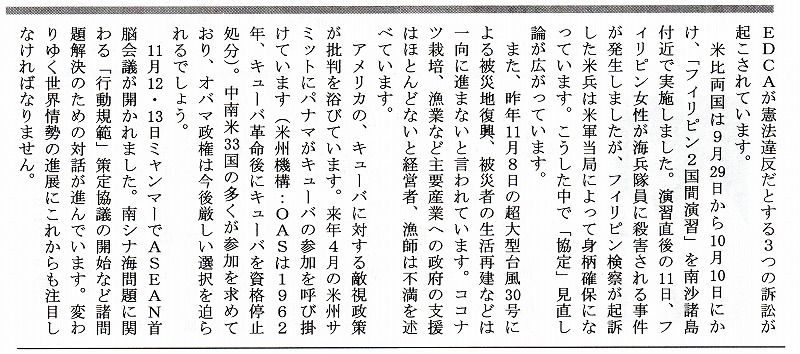 EDCAが憲法違反だとする3つの訴訟が
起こされています。
　米比両国は9月29日から10月10日にか
け、「フィリピン2国間演習」を南沙諸島
付近で実施しました。演習直後の11日、フ
ィリピン女性が海兵隊員に殺害される事件
が発生しましたが、フィリピン検察が起訴
した米兵は米軍当局によって身柄確保にな
っています。こうした中で「協定」見直し
論が広がっています。
　また、昨年11月8日の超大型台風30号に
よる被災地復興、被災者の生活再建などは
一向に進まないと言われています。ココナ
ツ栽培、漁業など主要産業への政府の支援
はほとんどないと経営者、漁師は不満を述
べています。
　アメリカの、キューバに対する敵視政策
が批判を浴びています。来年4月の米州サ
ミットにパナマがキューバの参加を呼び掛
けています（米州機構：OASは1962
年、キューバ革命後にキューバを資格停止
処分）。中南米33国の多くが参加を求めて
おり、オバマ政権は今後厳しい選択を迫ら
れるでしょう。
　11月12・13日ミャンマーでASEAN首
脳会議が開かれました。南シナ海問題に関
わる「行動規範」策定協議の開始など諸問
題解決のための対話が進んでいます。変わ
りゆく世界情勢の進展にこれからも注目し
なければなりません。